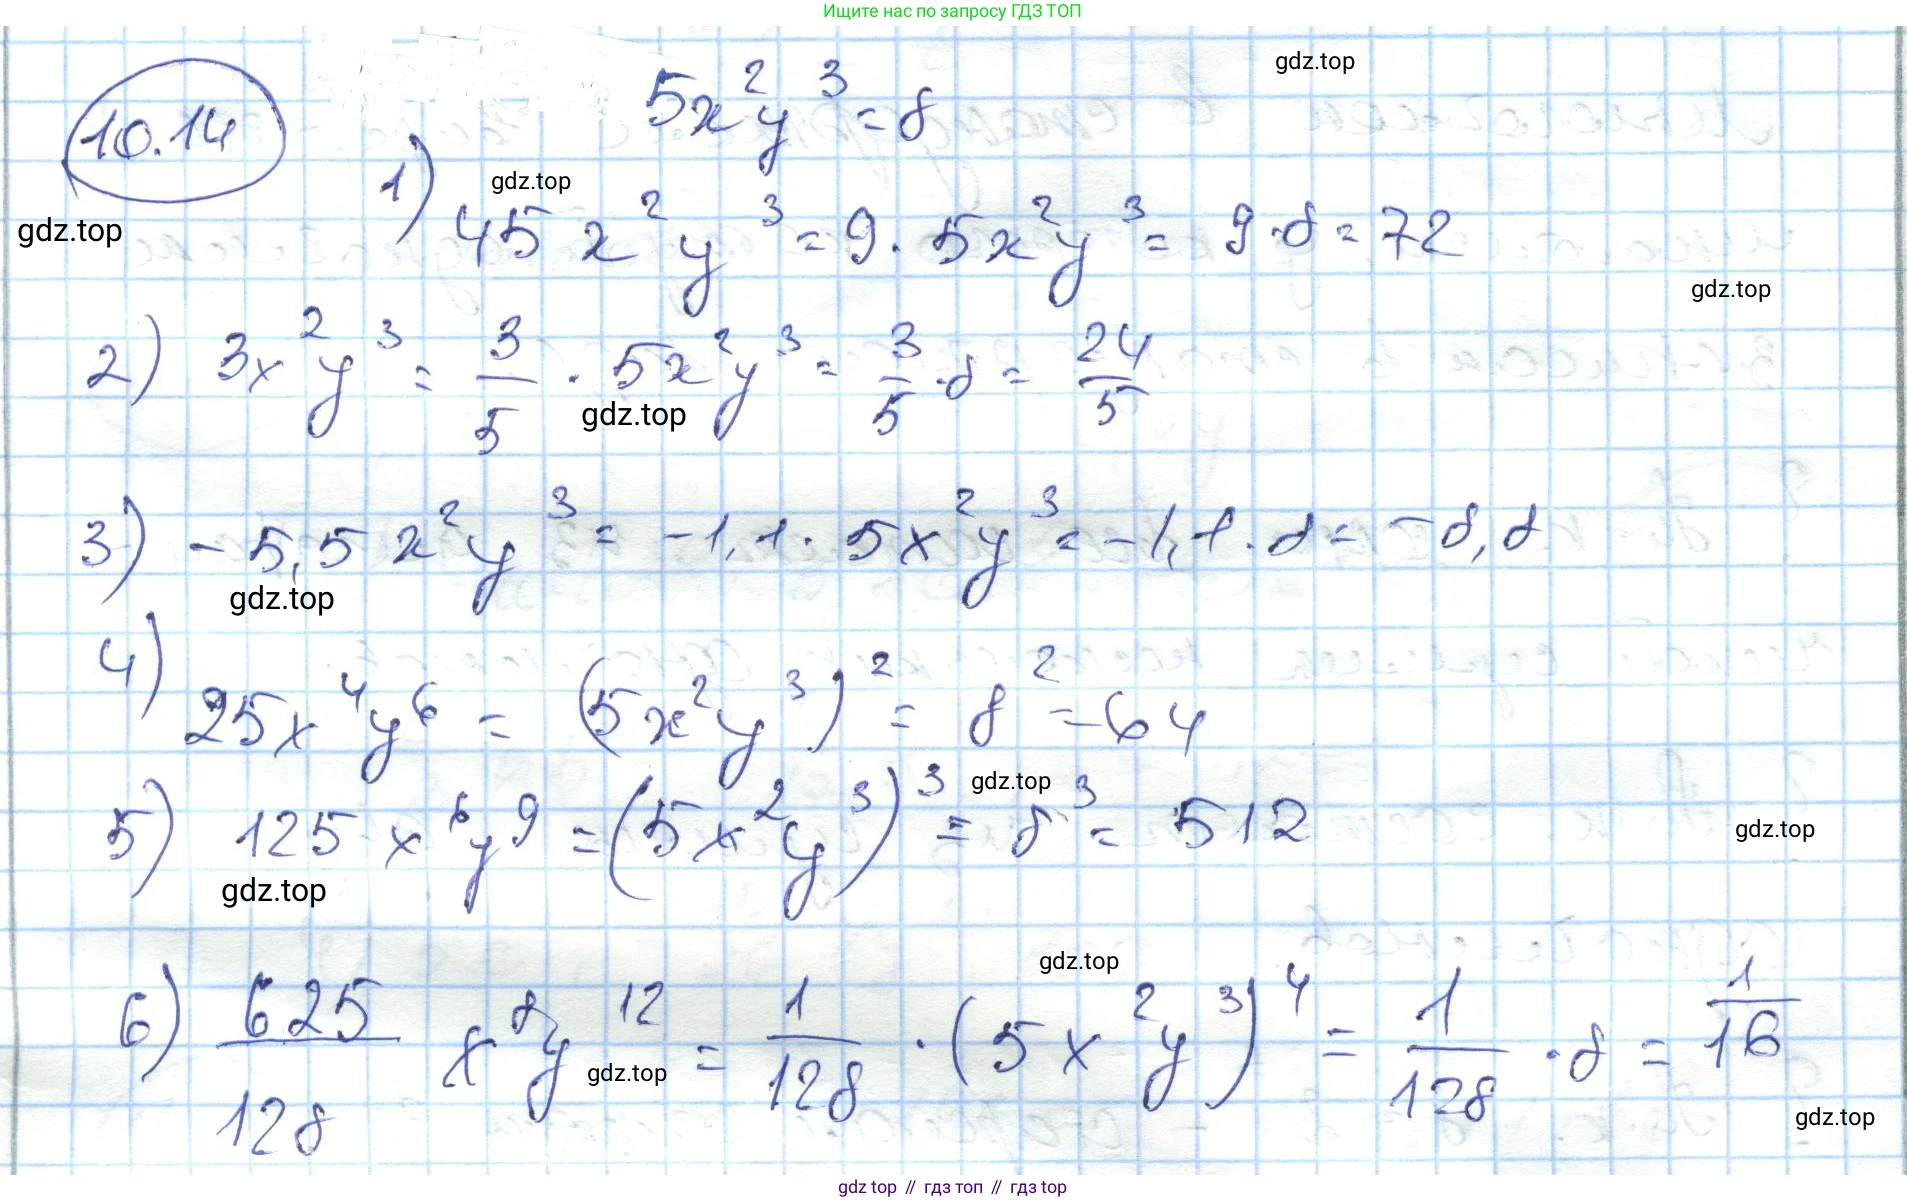 Ищите нас по запросу ГДЗ ТОП
gdz.top
10.14
5x²y³ = 8
gdz.top
gdz.top
1) 45x²y³ = 9 · 5x²y³ = 9 · 8 = 72
gdz.top
2) 3x²y³ = 3/5 · 5x²y³ = 3/5 · 8 = 24/5
gdz.top
3) -5,5x²y³ = -1,1 · 5x²y³ = -1,1 · 8 = -8,8
gdz.top
4) 25x⁴y⁶ = (5x²y³)² = 8² = 64
gdz.top
5) 125x⁶y⁹ = (5x²y³)³ = 8³ = 512
gdz.top
gdz.top
gdz.top
6) 625/128 x⁸y¹² = 1/128 · (5x²y³)⁴ = 1/128 · 8 = 1/16
gdz.top
gdz.top
gdz top // гдз топ // гдз top